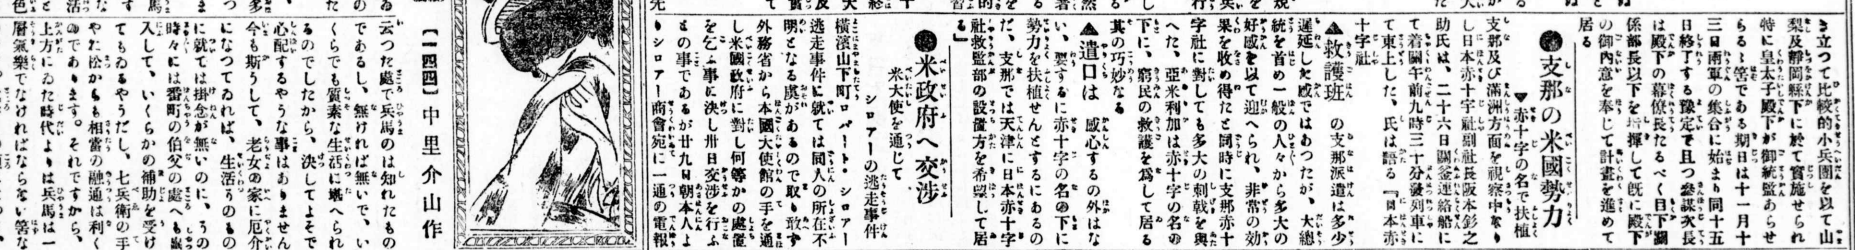 き立つて比較的小兵團を以て山
梨及靜岡縣下に於て實施せられ
特に皇太子殿下が御統監あらせ
らるゝ筈である期日は十一月十
三日兩軍の集合に始まり同十五
日終了する豫定で且つ參謀次長
は殿下の幕僚長たるべく目下
係部長以下を指揮して既に殿下
の御內意を奉じて計畫を進めて
居る
●支那の米國勢力
▼赤十字の名で扶植
支那及び滿洲方面を視察中なり
し日本赤十字社副社長阪本釤之
助氏は、二十六日關釜連絡船に
て着關午前九時三十分發列車に
て東上した、氏は語る『日本赤
十字社
▲救護班 の支那派遣は多少
遲延した感ではあつたが、大總
統を首め一般の人々から多大の
好感を以て迎へられ、非常の効
果を收め得たと同時に支那赤十
字社に對しても多大の刺戟を與
へた、亞米利加は赤十字の名の
下に、窮民の救護を爲して居る
其の巧妙なる
▲遣口は 感心するの外はな
い、要するに赤十字の名の下に
勢力を扶植せんとするにあるの
だ、支那では天津に日本赤十字
社救護部の設置方を希望して居
る』
●米政府へ交涉
米大使を通じて
シロアーの逃走事件
橫濱山下町ロバート・シロアー
逃走事件に就ては同人の所在不
明となる虞があるので取り敢ず
外務省から本國大使館の手を通
し米國政府に對し何等かの處置
を乞ふ事に決し卅日交涉を行ふ
との事であるが廿九日朝本人よ
りシロアー商會宛に一通の電報
【一四四】中里介山作
云つた處で兵馬のは知れたもの
であるし、無ければ無いで、い
くらでも質素な生活に堪へられ
るのでしたから、決してよそで
心配するやうな事はありません
今も斯うして、老女の家に厄介
になつてゐれば、生活うのもの
に就ては掛念が無いのに、うの
時々には番町の伯父の處へも
入して、いくらかの補助を受け
てもゐるやうだし、七兵衞の手
やた松からも相當の融通は利く
のであります。それですから、
上方にゐた時代よりは兵馬は一
層氣樂でなければならない筈な